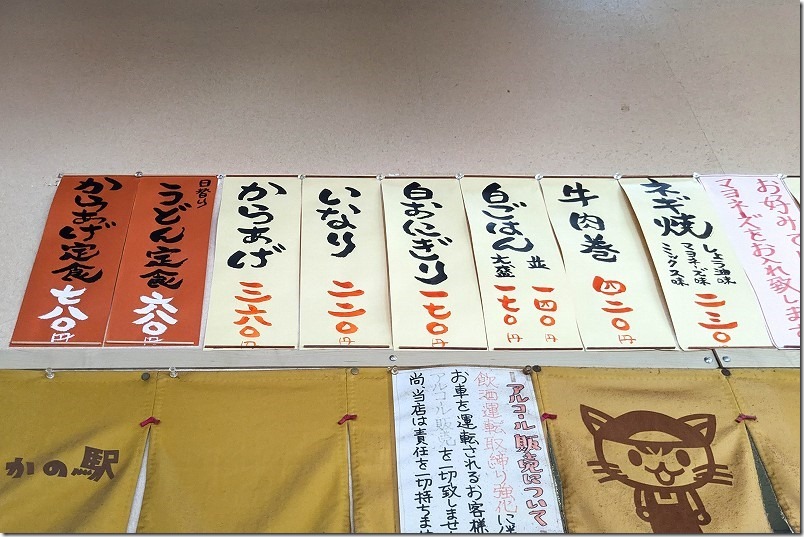 お好みで
マヨネーズをお入れ致しま
ネギ焼
しょう油味
マヨネーズ味
ミックス味
二三〇
牛肉巻
四二〇円
白ごはん
並 一四〇円
大盛 一七〇円
白おにぎり
一七〇円
いなり
二二〇円
からあげ
三六〇円
日替り
うどん定食
六八〇円
からあげ定食
七八〇円
アルコール販売について
飲酒運転取締り強化に
お車を運転されるお客様
アルコール販売を一切致しませ
尚、当店は責任を一切持ちませ
かの駅